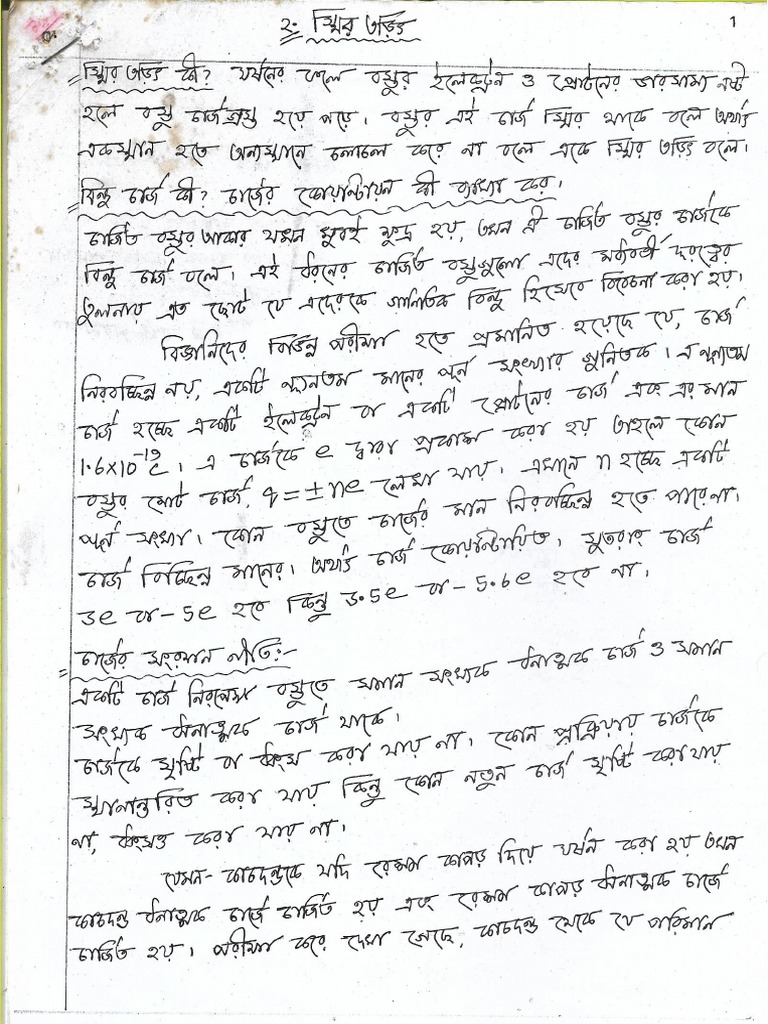 ২. স্থির তড়িৎ
1
স্থির তড়িৎ কী? ঘর্ষনের ফলে বস্তুর ইলেকট্রন ও প্রোটনের ভারসাম্য নষ্ট
হলে বস্তু চার্জগ্রস্ত হয়ে পড়ে। বস্তুর এই চার্জ স্থির থাকে বলে অর্থাৎ
একস্থান হতে অন্যস্থানে চলাচল করে না বলে একে স্থির তড়িৎ বলে।
বিন্দু চার্জ কী? চার্জের কোয়ান্টায়ন কী ব্যাখ্যা কর।
চার্জিত বস্তুর আকার যখন খুবই ক্ষুদ্র হয়, তখন ঐ চার্জিত বস্তুর চার্জকে
বিন্দু চার্জ বলে। এই ধরনের চার্জিত বস্তুগুলো এদের মধ্যবর্তী দূরত্বের
তুলনায় এত ছোট যে এদেরকে গানিতিক বিন্দু হিসেবে বিবেচনা করা হয়।
বিজ্ঞানিদের বিভিন্ন পরীক্ষা হতে প্রমানিত হয়েছে যে, চার্জ
নিরবচ্ছিন্ন নয়, একটি ন্যূনতম মানের পূর্ন সংখ্যার গুনিতক। এ ন্যূনতম
চার্জ হচ্ছে একটি ইলেকট্রন বা একটি প্রোটনের চার্জ এবং এর মান
1.6x10⁻¹⁹c। এ চার্জকে e দ্বারা প্রকাশ করা হয় তাহলে কোন
বস্তুর মোট চার্জ, q = ± ne লেখা যায়। এখানে n হচ্ছে একটি
পূর্ন সংখ্যা। কোন বস্তুতে চার্জের মান নিরবচ্ছিন্ন হতে পারেনা।
চার্জ বিচ্ছিন্ন মানের। অর্থাৎ চার্জ কোয়ান্টায়িত। সুতরাং চার্জ
3e বা -5e হবে কিন্তু 3.5e বা -5.6e হবে না।
চার্জের সংরক্ষন নীতি:-
একটি চার্জ নিরপেক্ষ বস্তুতে সমান সংখ্যক ধনাত্মক চার্জ ও সমান
সংখ্যক ঋনাত্মক চার্জ থাকে।
চার্জকে সৃষ্টি বা ধ্বংস করা যায় না। কোন প্রক্রিয়ায় চার্জকে
স্থানান্তরিত করা যায় কিন্তু কোন নতুন চার্জ সৃষ্টি করা যায়
না, ধ্বংসও করা যায় না।
যেমন- কাচদন্ডকে যদি রেশম কাপড় দিয়ে ঘর্ষন করা হয় তখন
কাচদন্ড ধনাত্মক চার্জে চার্জিত হয় এবং রেশম কাপড় ঋনাত্মক চার্জে
চার্জিত হয়। পরীক্ষা করে দেখা গেছে, কাচদন্ড থেকে যে পরিমান